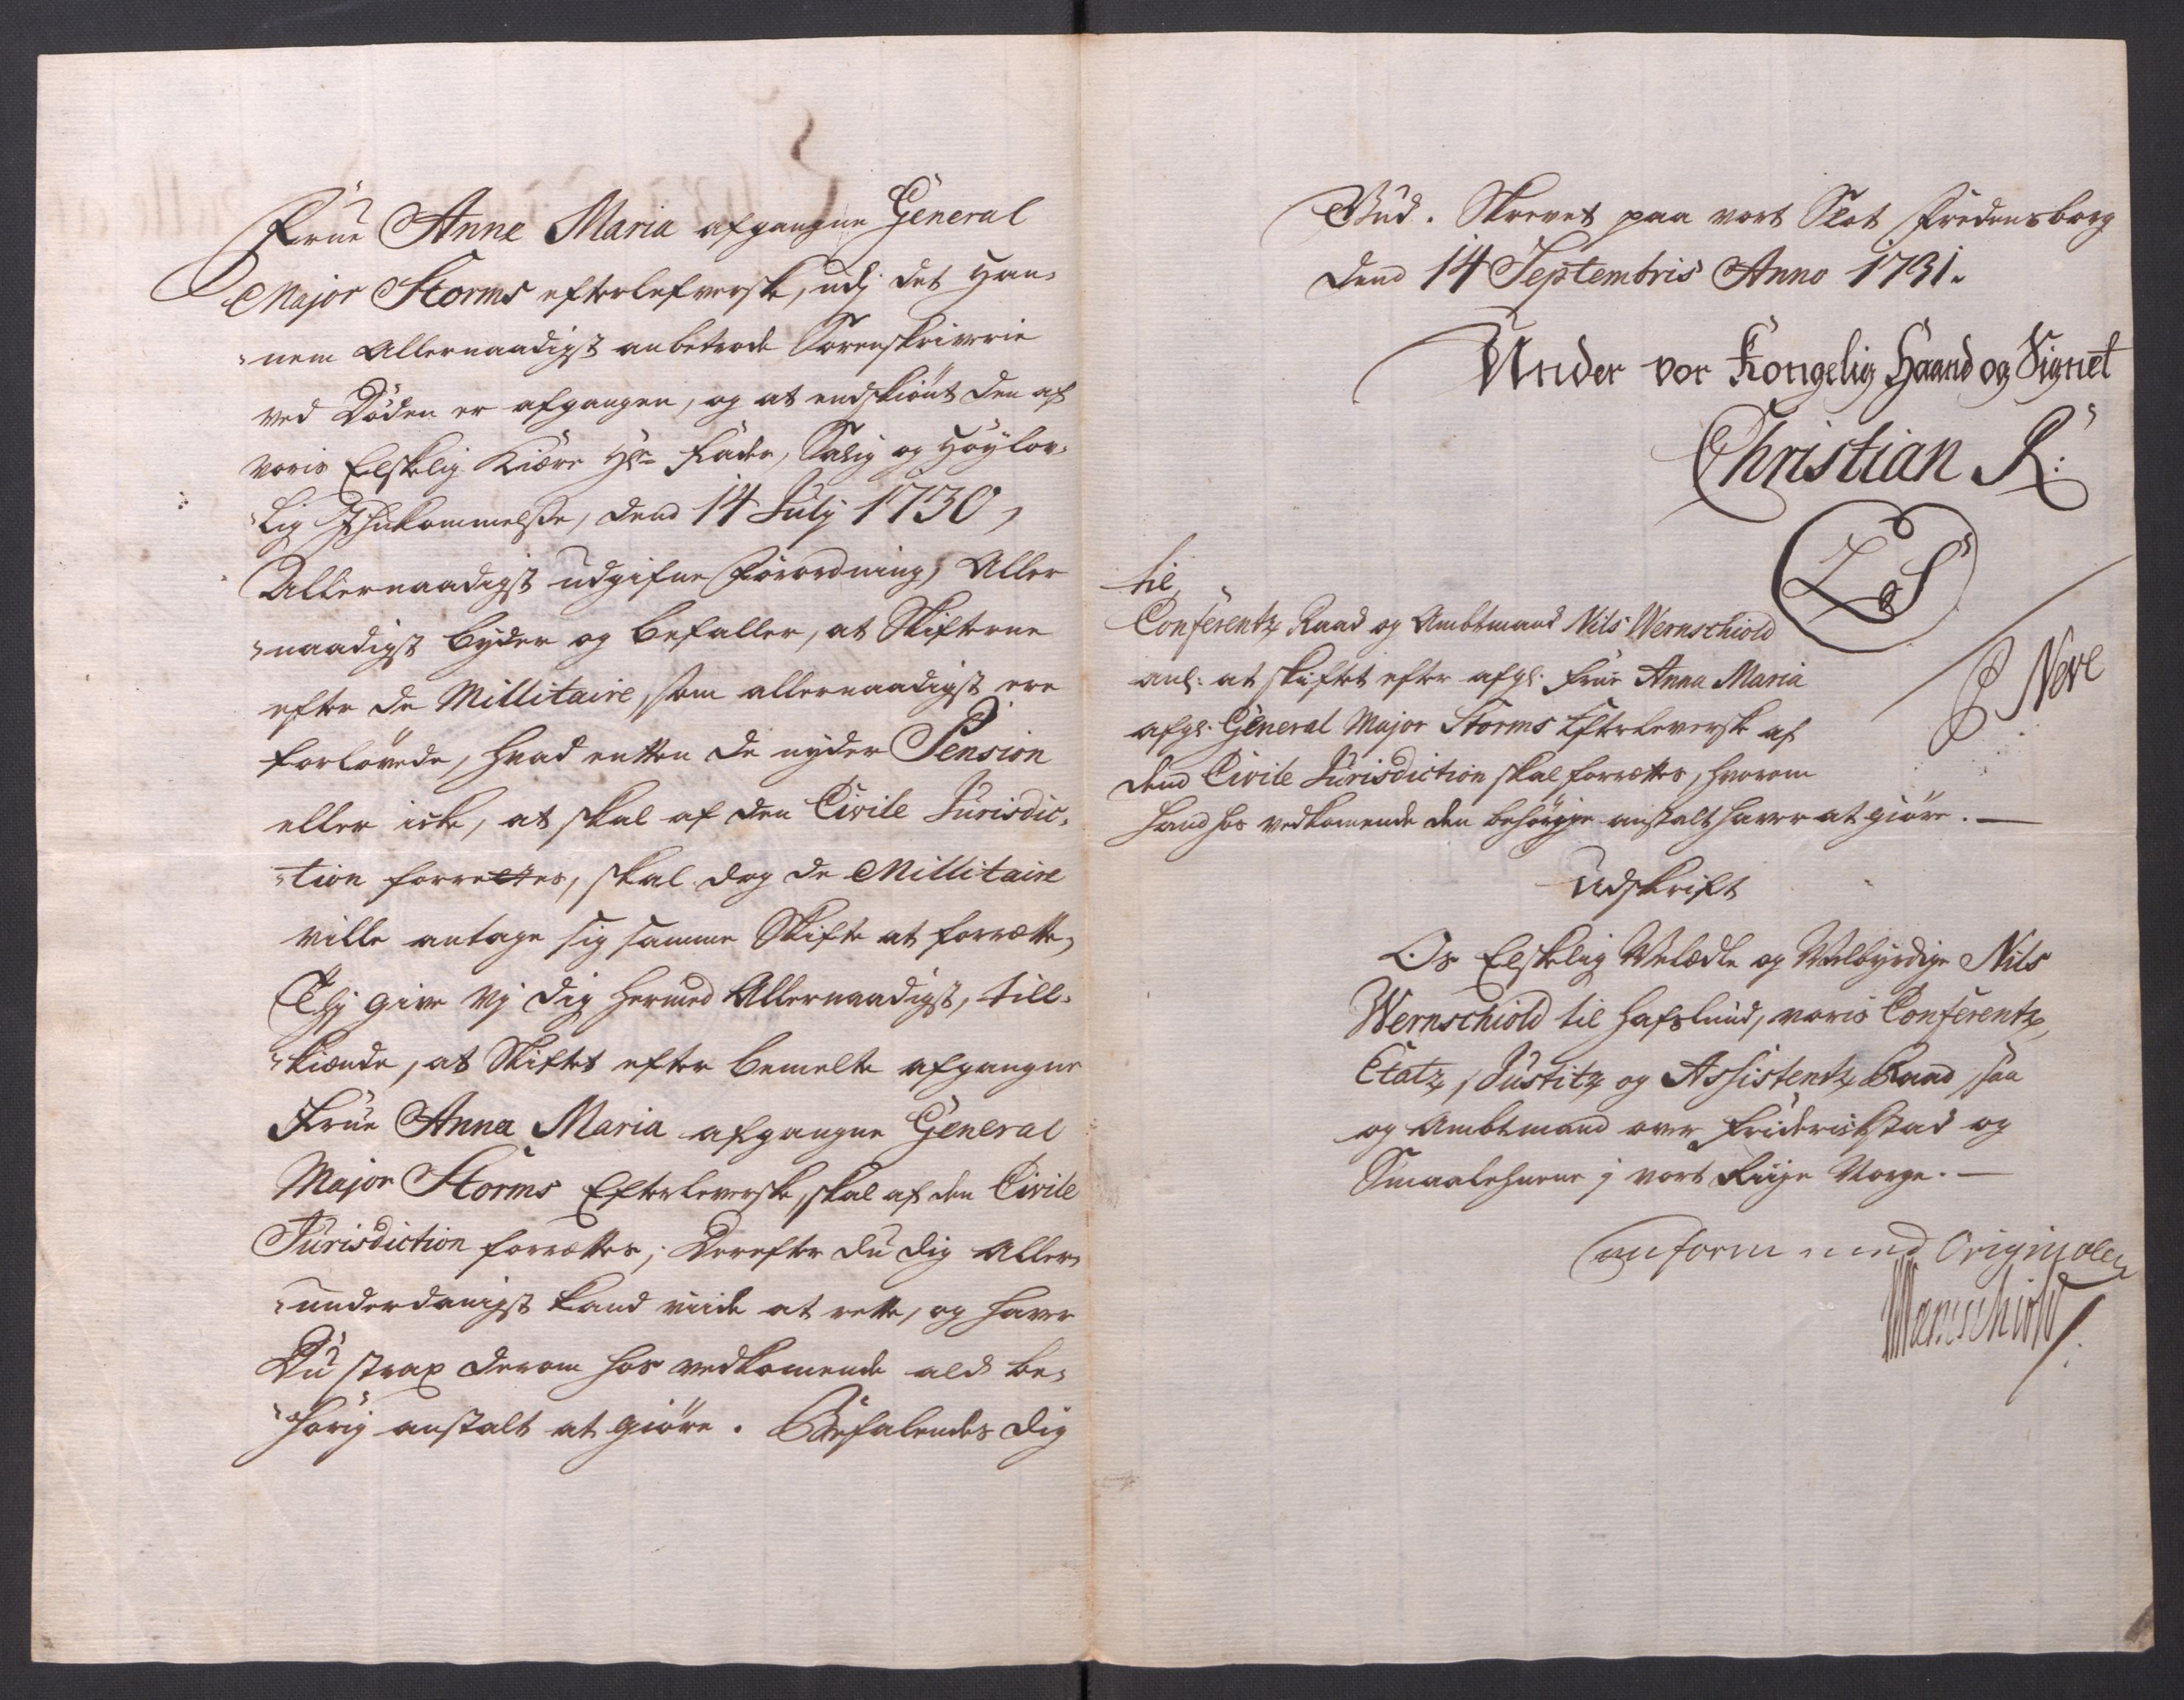 Frue Anne Maria afgangne General
Major Storms efterlefverske, udj det han-
nem Allernaadigst anbetrode Sorenskriverie
ved Döden er afgangen, og at endskiönt den af
voris Elskelig Kiære Hr Fader, Salig og Höylov-
lig Ihukommelse, dend 14 July 1730,
Allernaadigst udgifne Forordning, Aller
naadigst byder og befaller, at Skifterne
efter de Millitaire, som allernaadigst ere
forlövede, hvad enten de nyder Pension
eller icke, at skal af den Civile Jurisdic-
tion forrettes, skal dog de Millitaire
ville antage sig samme Skifte at forrætte,
Thj give Vj dig hermed Allernaadigst, till-
kiende, at Skiftet efter bemelte afgangne
Frue Anna Maria afgangne General
Major Storms Efterleverske, skal af den Civile
Jurisdiction forrættes; Derefter du dig Aller-
underdanigst kand viide at rette, og haver
Du strax derom hos vedkomende ald be-
hörig anstalt at giöre. Befalendes dig
Gud. Skrevet paa vort Slot Fredensborg
Dend 14 Septembris Anno 1731.
Under vor Kongelig Haand og Signet
Christian R:
L S
Neve
til
Conferentz Raad og Ambtmand Nils Wernschiold
anl: at skiftet efter afgl: Frue Anna Maria
afgl: General Major Storms Efterleverske af
dend Civile Jurisdiction skal forrættes, hvorom
hand hos vedkomende den behörige anstalt haver at giöre. —
Udskrift
Os Elskelig Velædle og Velbyrdige Nils
Wernschiold til Hafslund, voris Conferentz,
Etatz, Justitz og Assistentz Raad, saa
og Ambtmand over Friderichstad og
Smaalehnene j vort Riige Norge. —
Conform med Originalen
Wernschiold